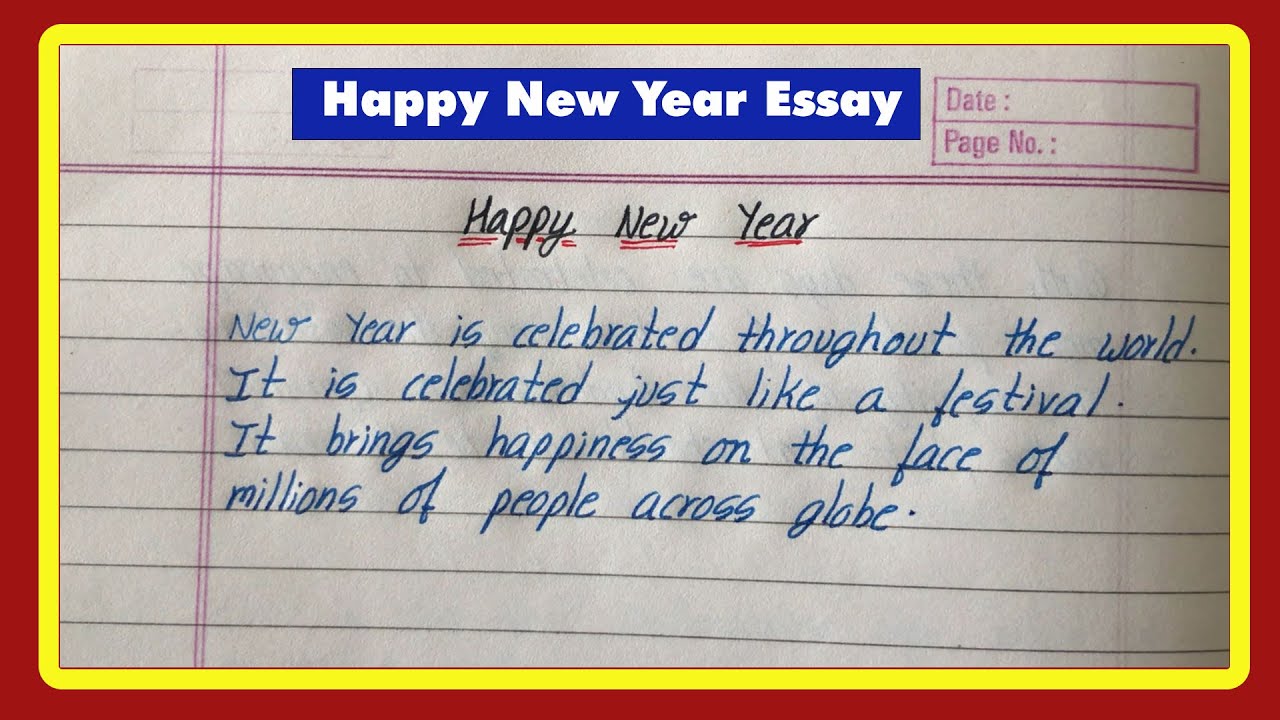 Happy New Year Essay
Date :
Page No. :
Happy New Year
New Year is celebrated throughout the world.
It is celebrated just like a festival.
It brings happiness on the face of
millions of people across globe.